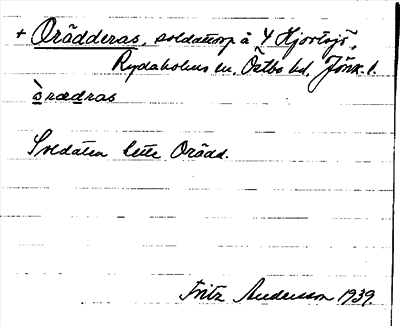 + Orädderas, soldattorp å Y Hjortsjö,
Rydaholms sn, Östbo hd, Jönk. l.
òrædras
Soldaten hette Orädd.
Fritz Andersson 1939.